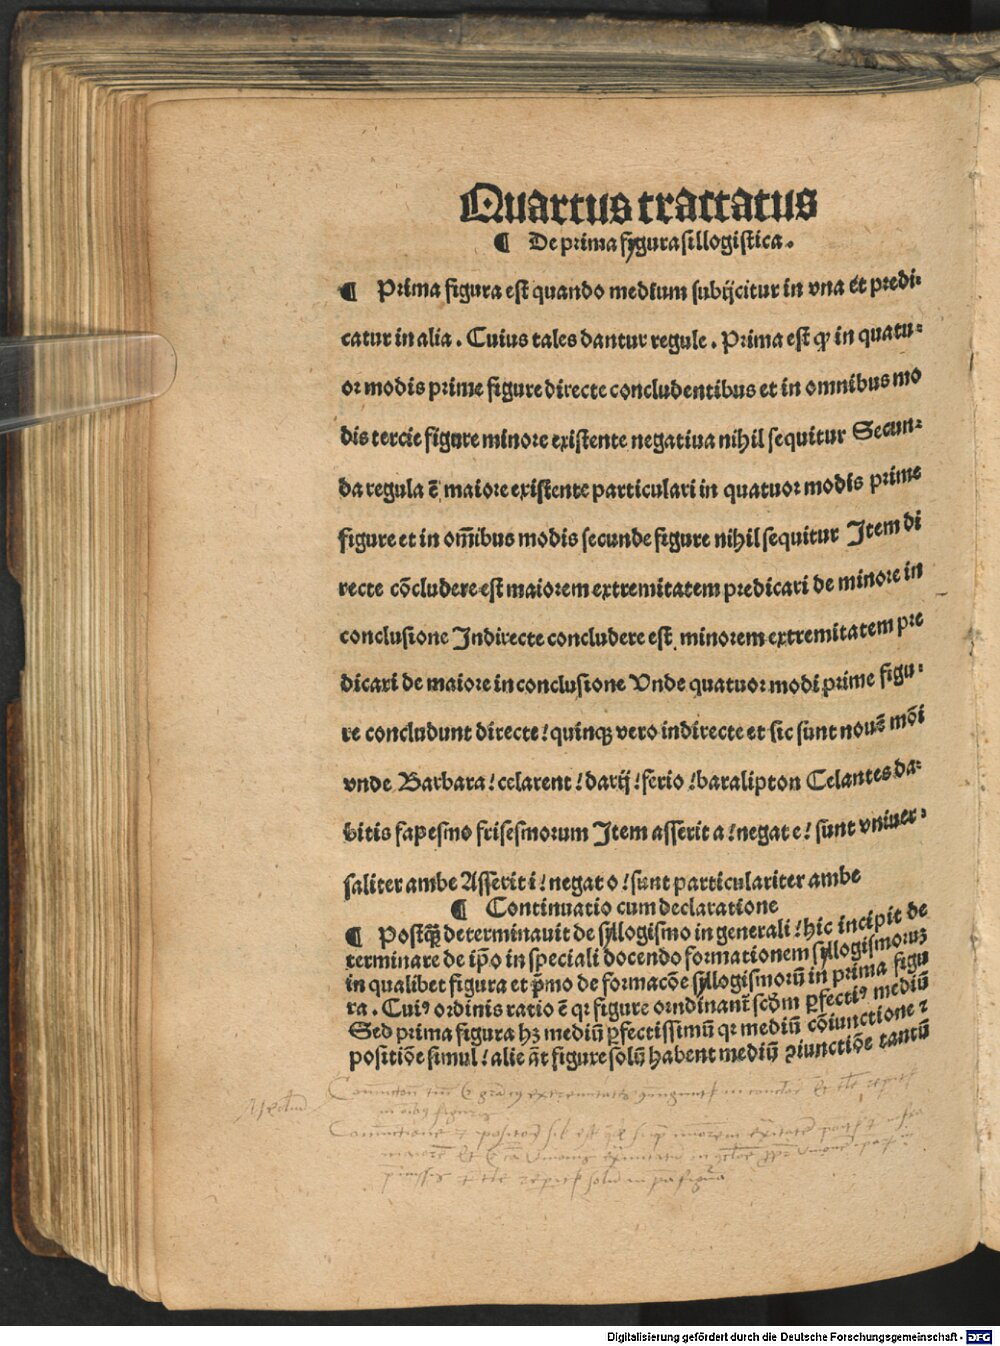 Quartus tractatus
¶ De prima fygura sillogistica.
¶ Prima figura est quando medium subijcitur in vna et predi⸗
catur in alia. Cuius tales dantur regule. Prima est ꝙ in quatu⸗
or modis prime figure directe concludentibus et in omnibus mo
dis tercie figure minore existente negatiua nihil sequitur Secun⸗
da regula ē maiore existente particulari in quatuor modis prime
figure et in om̄ibus modis secunde figure nihil sequitur Item di
recte cōcludere est maiorem extremitatem predicari de minore in
conclusione Indirecte concludere est minorem extremitatem pre
dicari de maiore in conclusione Vnde quatuor modi prime figu⸗
re concludunt directe! quinqꝫ vero indirecte et sic sunt nouē mōi
vnde Barbara! celarent! darij! ferio! baralipton Celantes da⸗
bitis fapesmo frisesmorum Item asserit a! negat e! sunt vniuer⸗
saliter ambe Asserit i! negat o! sunt particulariter ambe
¶ Continuatio cum declaratione
¶ Postqꝫ̄ determinauit de syllogismo in generali! hic incipit de
terminare de ip̄o in speciali docendo formationem syllogismorꝫ
in qualibet figura et p̄mo de formacōe syllogismorū in prima figu
ra. Cuiꝰ ordinis ratio ē qr figure orndinant̄ scd̄m ꝑfectiꝰ mediū
Sed prima figura hꝫ mediū ꝑfectissimū qr mediū cōiunctione ⁊
positiōe simul! alie āt figure solū habent mediū ꝯiunctiōe tantū
Digitalisierung gefördert durch die Deutsche Forschungsgemeinschaft - DFG